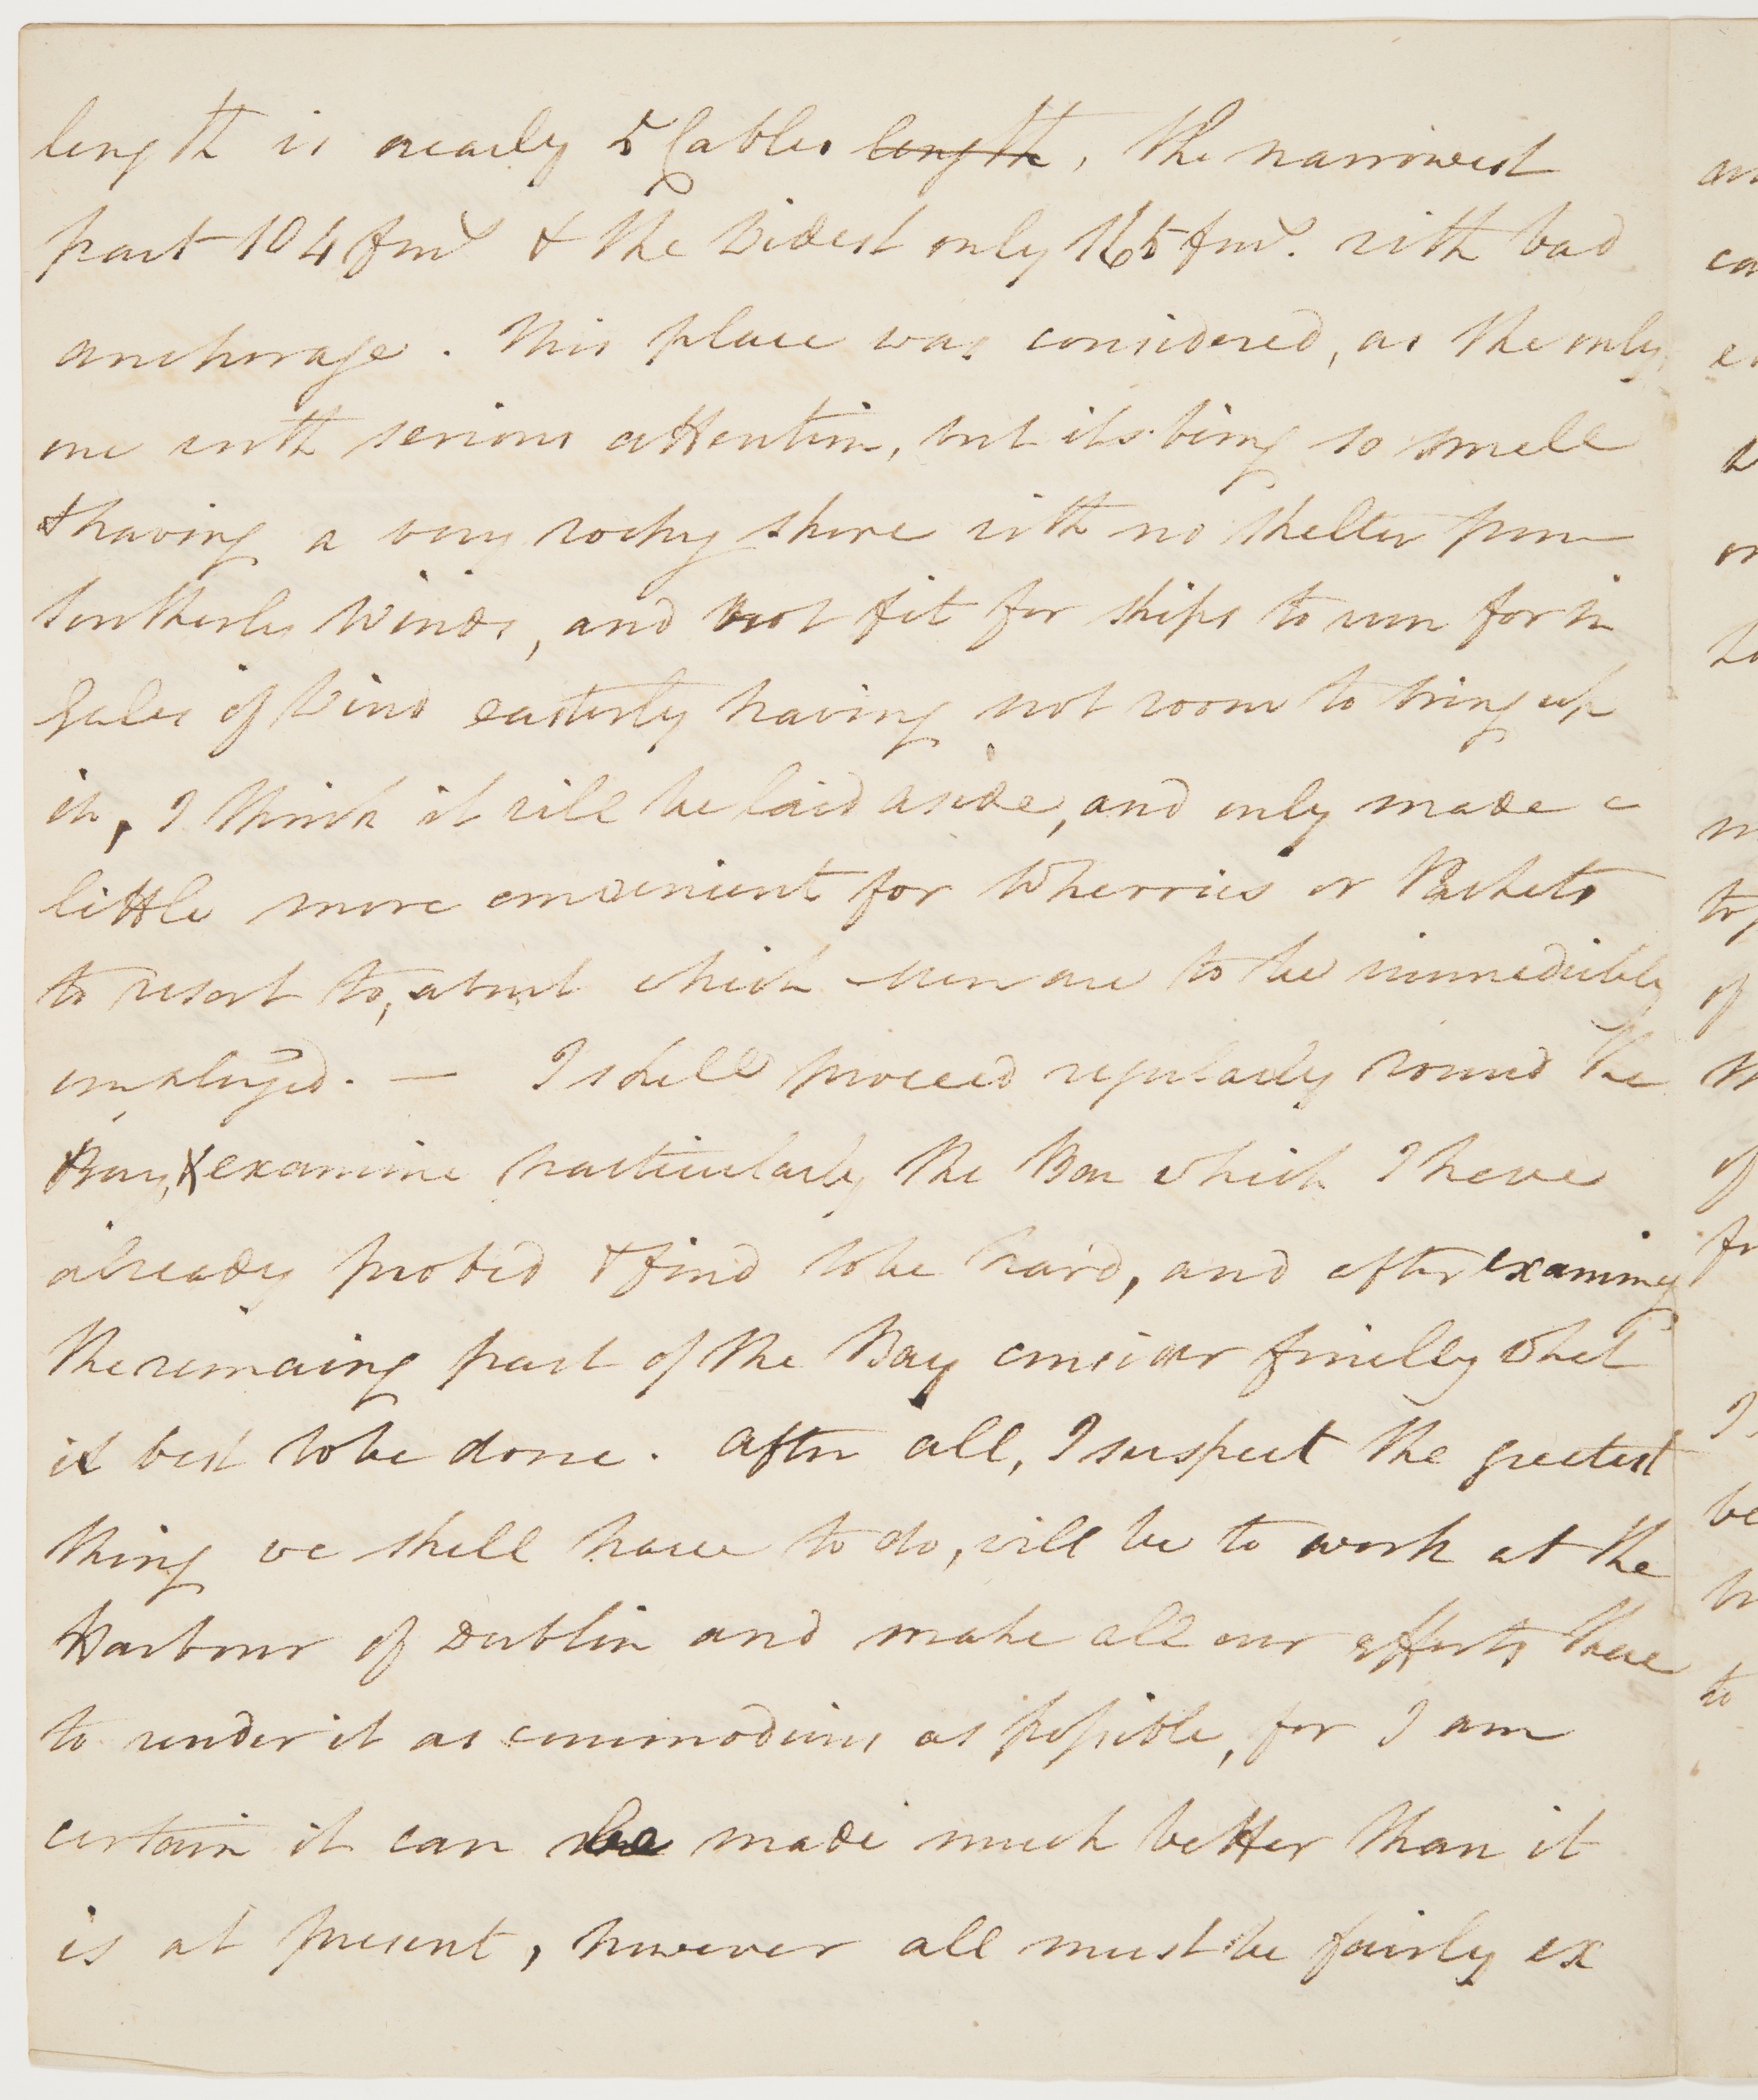 length is nearly 5 Cables length, the narrowest
part 104 fms & the Widest only 165 fms. with bad
anchorage. This place was considered, as the only
one with serious attention, but its being so small
& having a very rocky shore with no shelter from
Southerly Winds, and not fit for ships to run for in
Gales of Wind easterly having not room to bring up
in, I think it will be laid aside, and only made a
little more convenient for Wherries or Packets
to resort to, about which men are to be immediately
employed. — I shall proceed regularly round the
Bay, & examine particularly the Bar which I have
already probed & find to be hard, and after examing
the remaing part of the Bay consider finally what
is best to be done. After all, I suspect the greatest
thing we shall have to do, will be to work at the
Harbour of Dublin and make all our efforts there
to render it as commodious as possible, for I am
certain it can be made much better than it
is at present, however all must be fairly ex